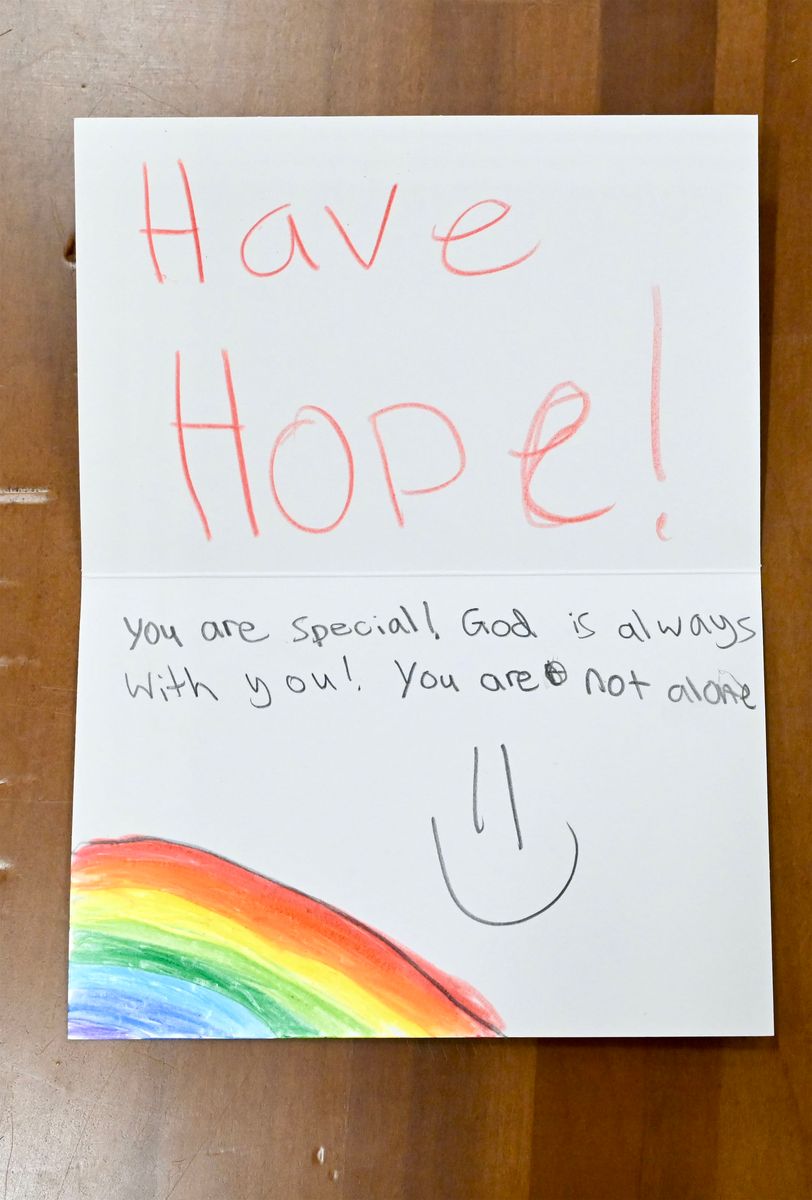 Have
Hope!
You are special! God is always
With you! You are not alone